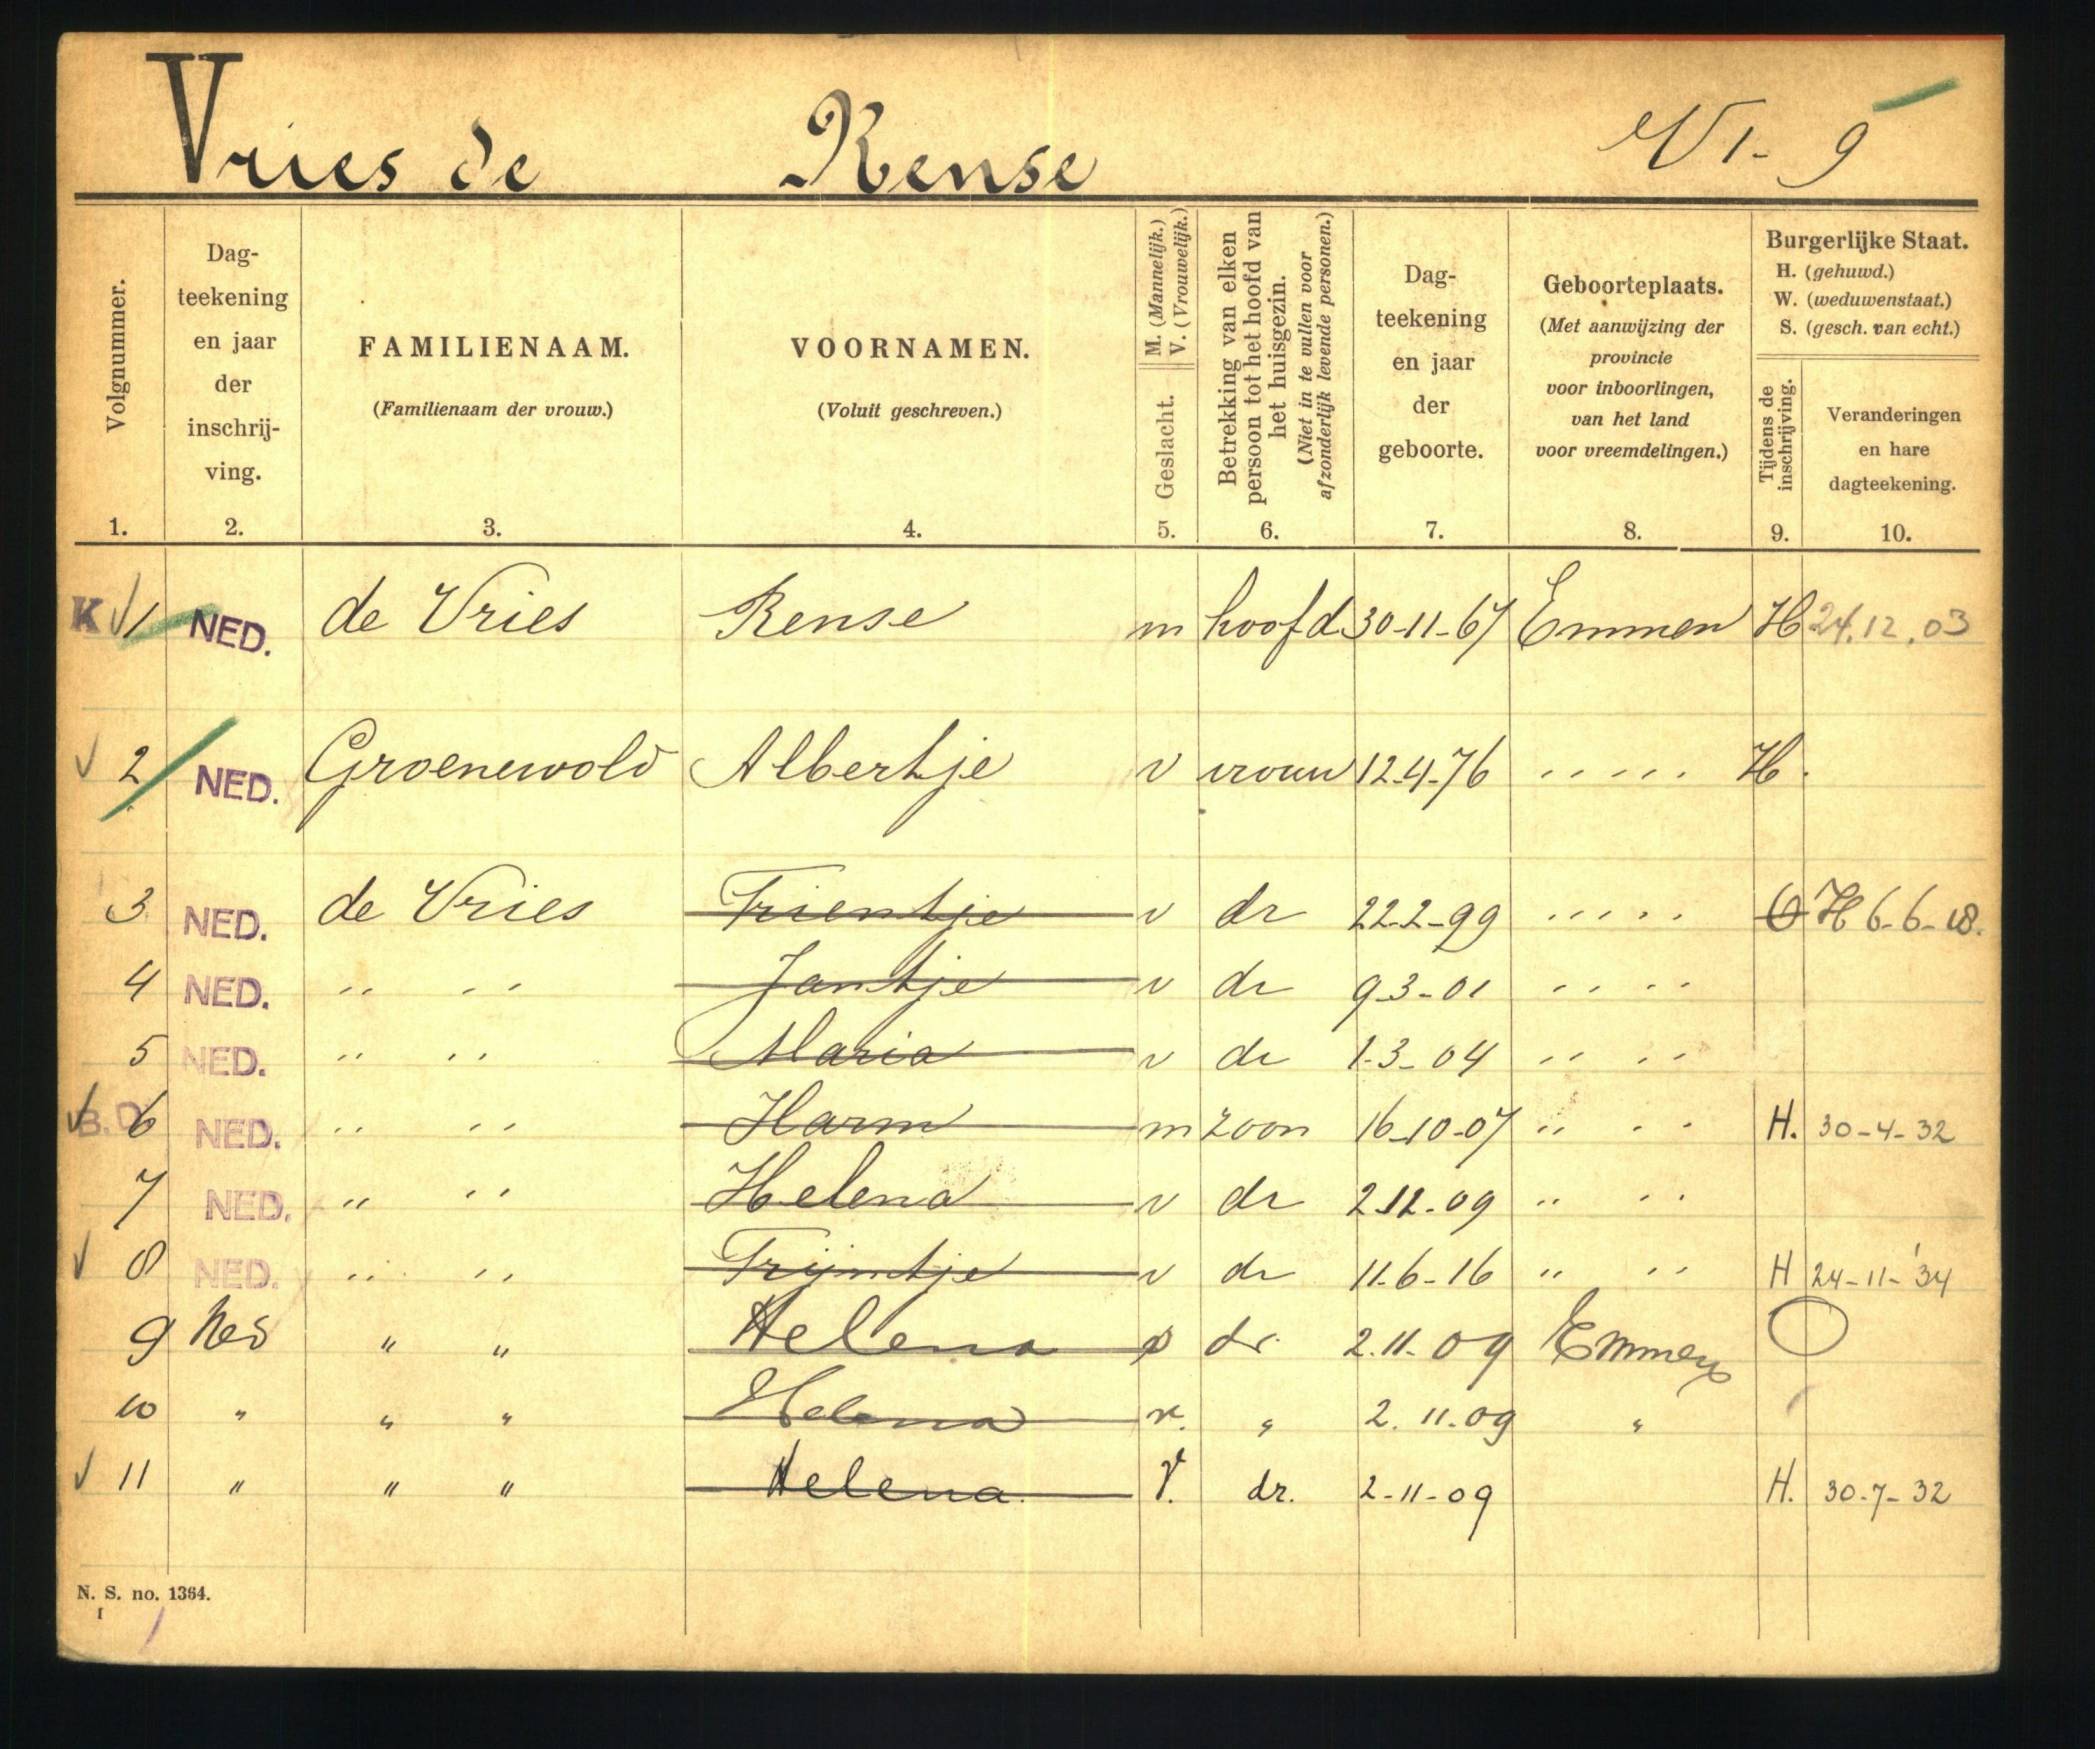 Vries de Rense VI - 9
Volgnummer.
Dag-
teekening
en jaar
der
inschrij-
ving.
FAMILIENAAM.
(Familienaam der vrouw.)
VOORNAMEN.
(Voluit geschreven.)
M. (Mannelijk.)
V. (Vrouwelijk.)
Geslacht.
Betrekking van elken
persoon tot het hoofd van
het huisgezin.
(Niet in te vullen voor
afzonderlijk levende personen.)
Dag-
teekening
en jaar
der
geboorte.
Geboorteplaats.
(Met aanwijzing der
provincie
voor inboorlingen,
van het land
voor vreemdelingen.)
Burgerlijke Staat.
H. (gehuwd.)
W. (weduwenstaat.)
S. (gesch. van echt.)
Tijdens de
inschrijving.
Veranderingen
en hare
dagteekening.
1. 2. 3. 4. 5. 6. 7. 8. 9. 10.
K 1 NED. de Vries Rense m hoofd 30-11-67 Emmen H 24.12.03
2 NED. Groenewold Albertje v vrouw 12-4-76 " " H.
3 NED. de Vries Trientje v dr 22-2-99 " " O H 6-6-18.
4 NED. " " Jantje v dr 9-3-01 " "
5 NED. " " Maria v dr 1-3-04 " "
B.D. 6 NED. " " Harm m zoon 16-10-07 " " H. 30-4-32
7 NED. " " Helena v dr 2-12-09 " "
8 NED. " " Trijntje v dr 11-6-16 " " H 24-11-'34
9 Ned " " Helena v dr. 2.11-09 Emmen O
10 " " " Helena v. " 2.11-09 "
11 " " " Helena V. dr. 2-11-09 H. 30-7-32
N. S. no. 1364.
I